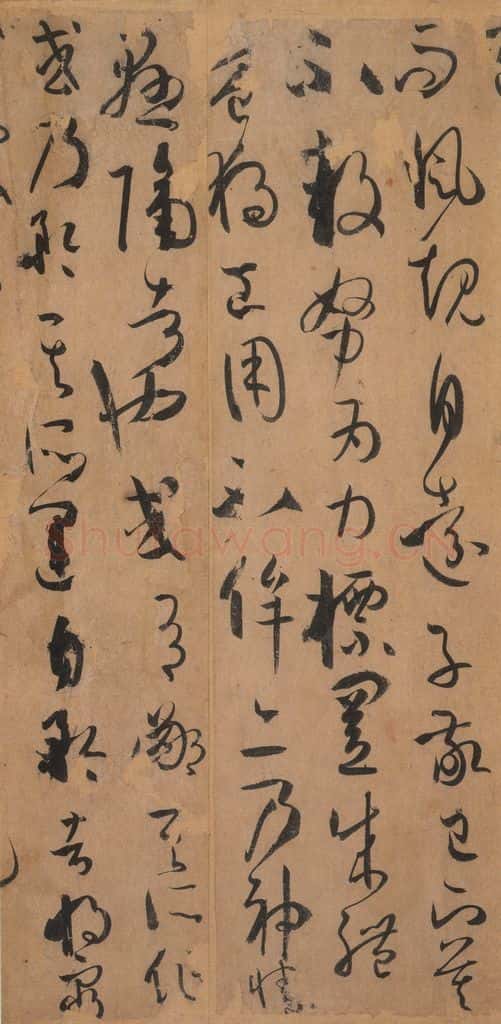 而風規自遠子敬已下莫
不鼓努為力標置成體
豈獨工用不侔亦乃神情
懸隔者也或有鄙其所作
或乃矜其所運自矜者將窮
shufawang.CN